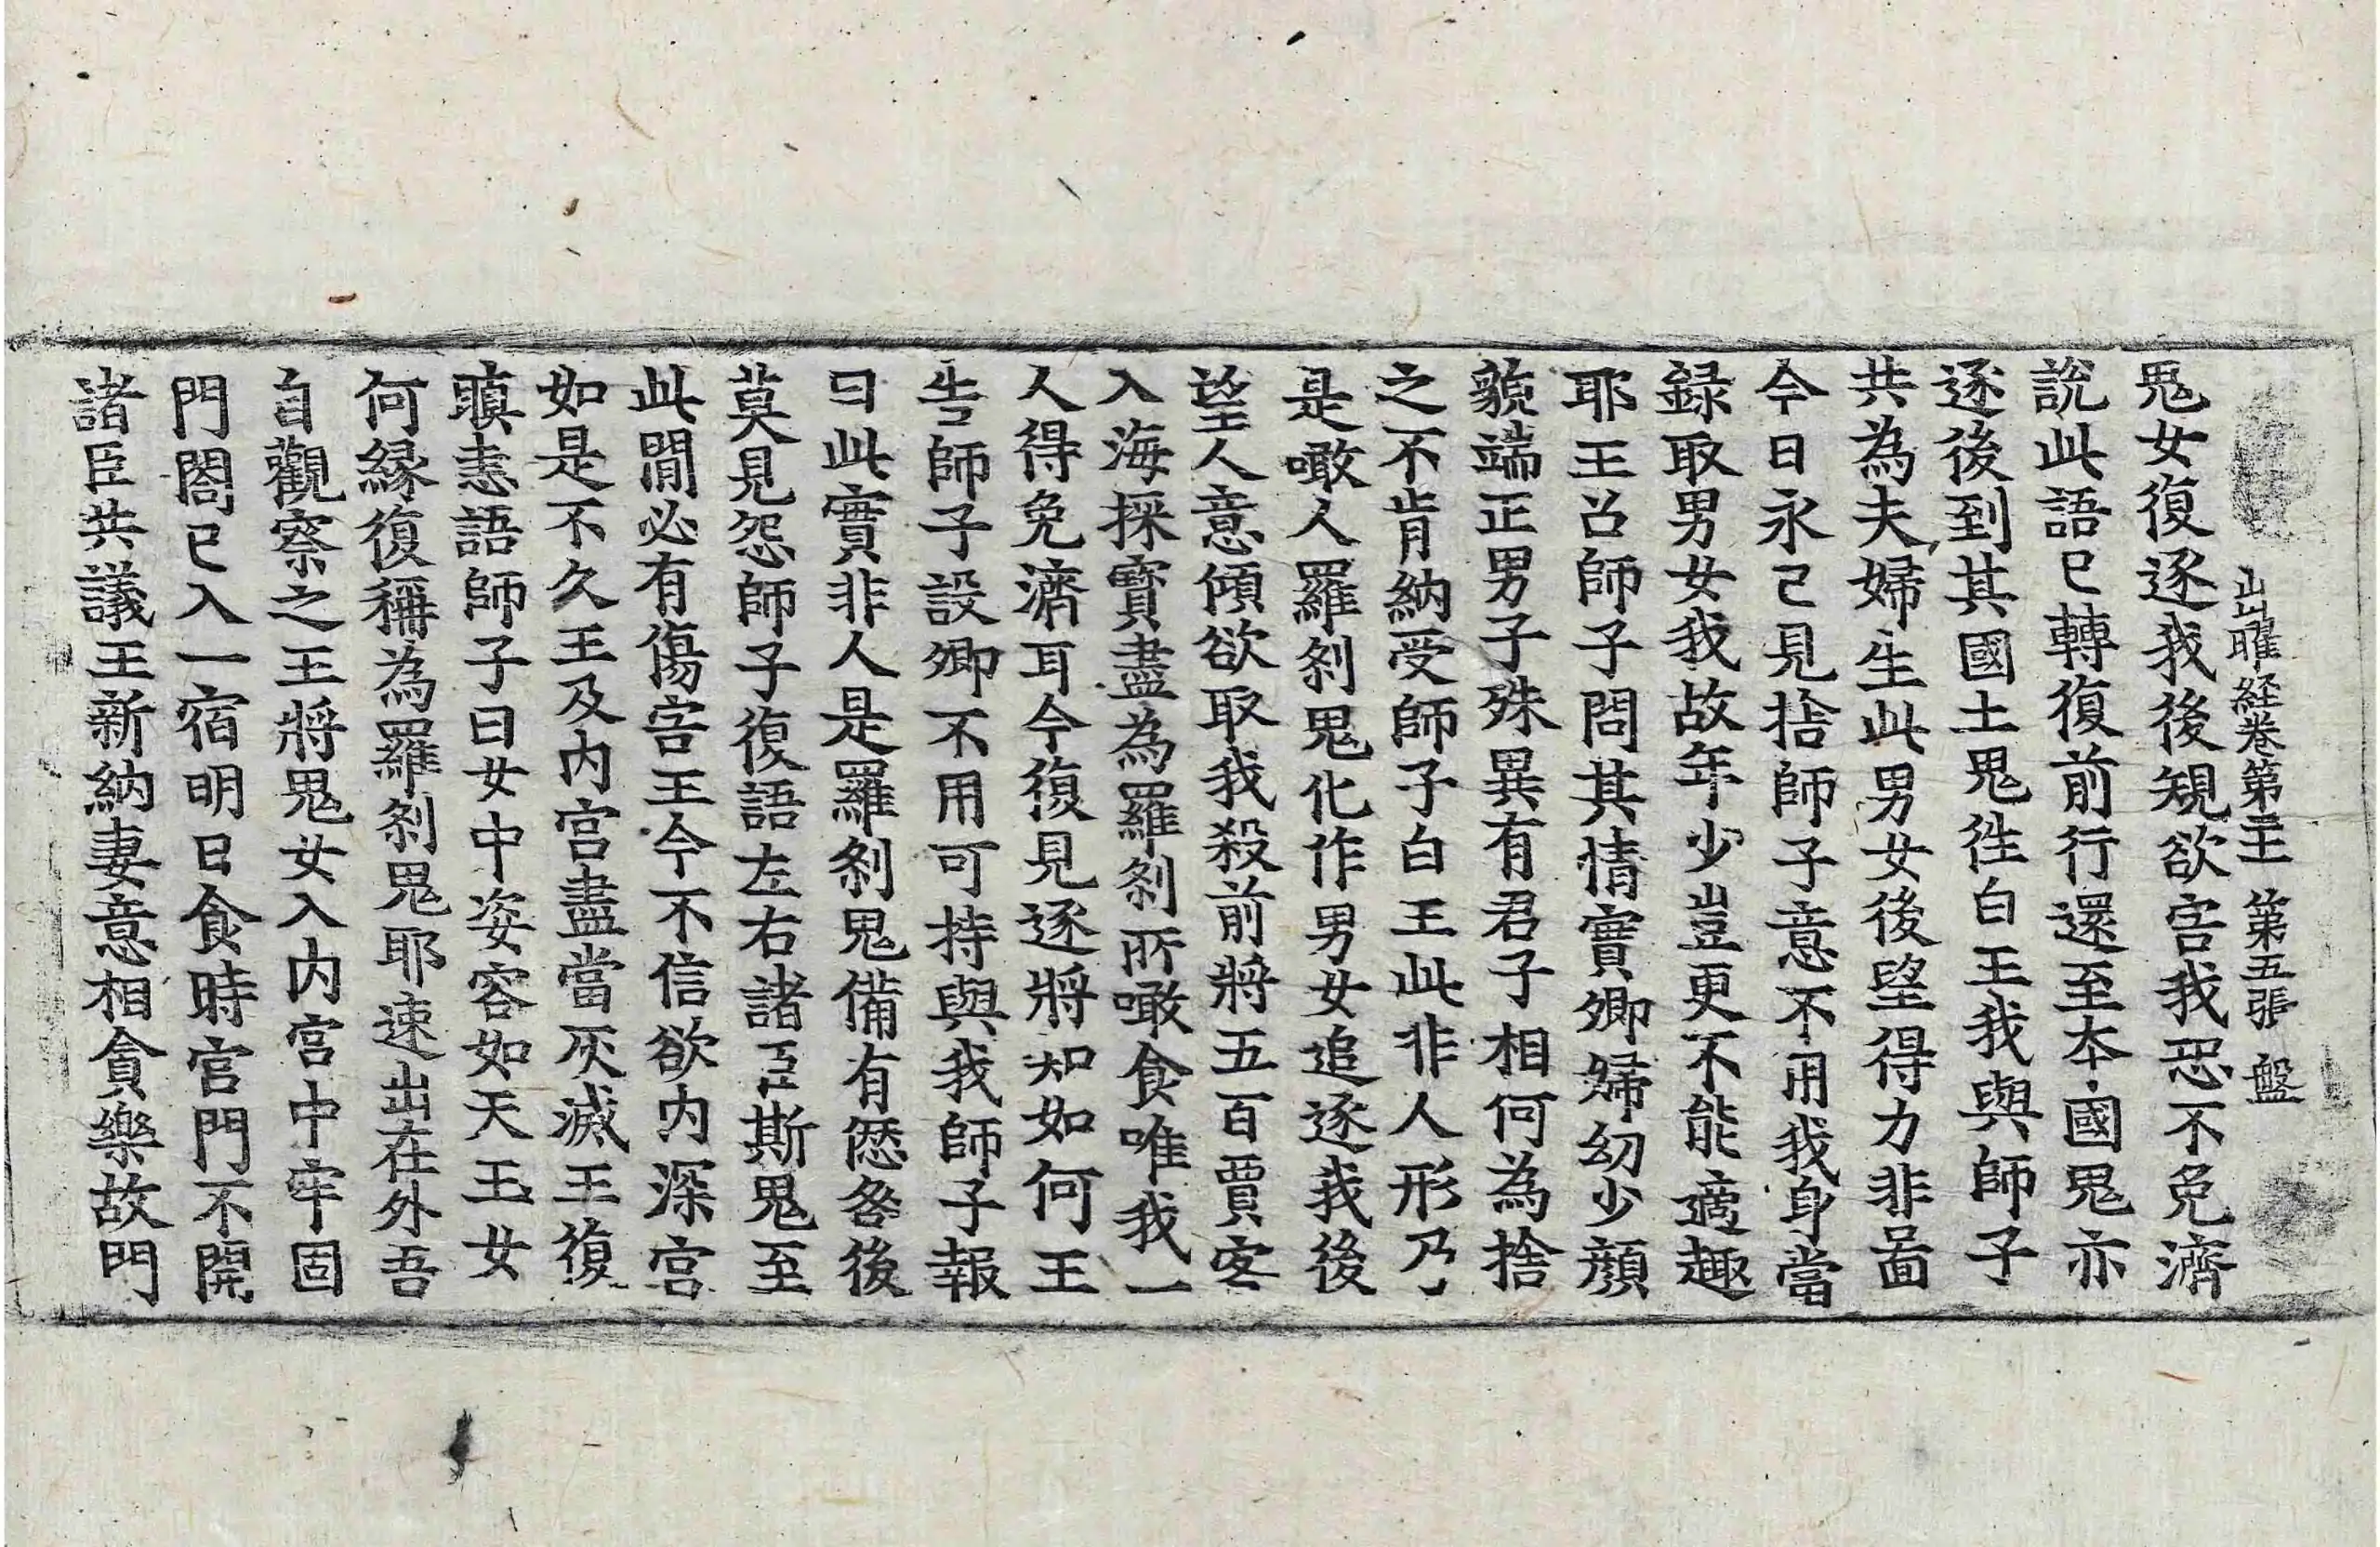 出曜経巻第二十一 第五張 盤
鬼女復逐我後規欲害我恐不免濟
說此語已轉復前行還至本國鬼亦
逐後到其國土鬼徃白王我與師子
共為夫婦生此男女後望得力非啚
今日永已見捨師子意不用我身當
録取男女我故年少豈更不能適趣
耶王召師子問其情實卿婦幼少顔
䫉端正男子殊異有君子相何為捨
之不肯納受師子白王此非人形乃
是噉人羅剎鬼化作男女追逐我後
望人意傾欲取我殺前將五百賈客
入海採寳盡為羅剎所噉食唯我一
人得免濟耳今復見逐將知如何王
告師子設卿不用可持與我師子報
曰此實非人是羅剎鬼備有𠍴咎後
莫見怨師子復語左右諸臣斯鬼至
此間必有傷害王今不信欲内深宮
如是不久王及内宮盡當灰滅王復
瞋恚語師子曰女中姿容如天王女
何縁復稱為羅剎鬼耶速出在外吾
自觀察之王將鬼女入内宮中牢固
門閤已入一宿明日食時宮門不開
諸臣共議王新納妻意相貪樂故門